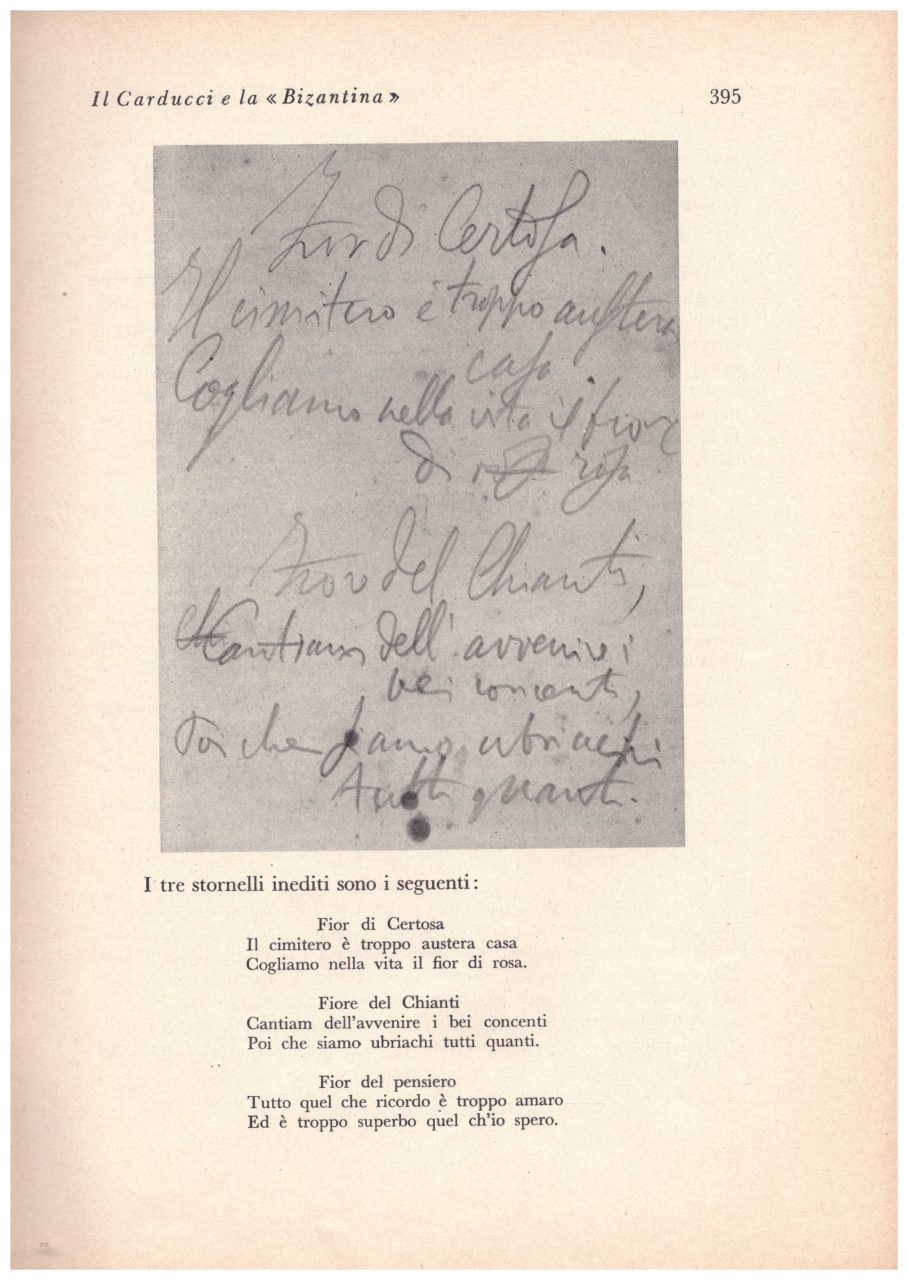 Il Carducci e la « Bizantina »
395
Fior di Certosa.
Il cimitero è troppo austera
casa.
Cogliamo nella vita il fior
di rosa
Fior del Chianti,
Cantiam dell'avvenire i
bei concenti,
Poi che siamo ubriachi
tutti quanti.
I tre stornelli inediti sono i seguenti:
Fior di Certosa
Il cimitero è troppo austera casa
Cogliamo nella vita il fior di rosa.
Fiore del Chianti
Cantiam dell'avvenire i bei concenti
Poi che siamo ubriachi tutti quanti.
Fior del pensiero
Tutto quel che ricordo è troppo amaro
Ed è troppo superbo quel ch'io spero.